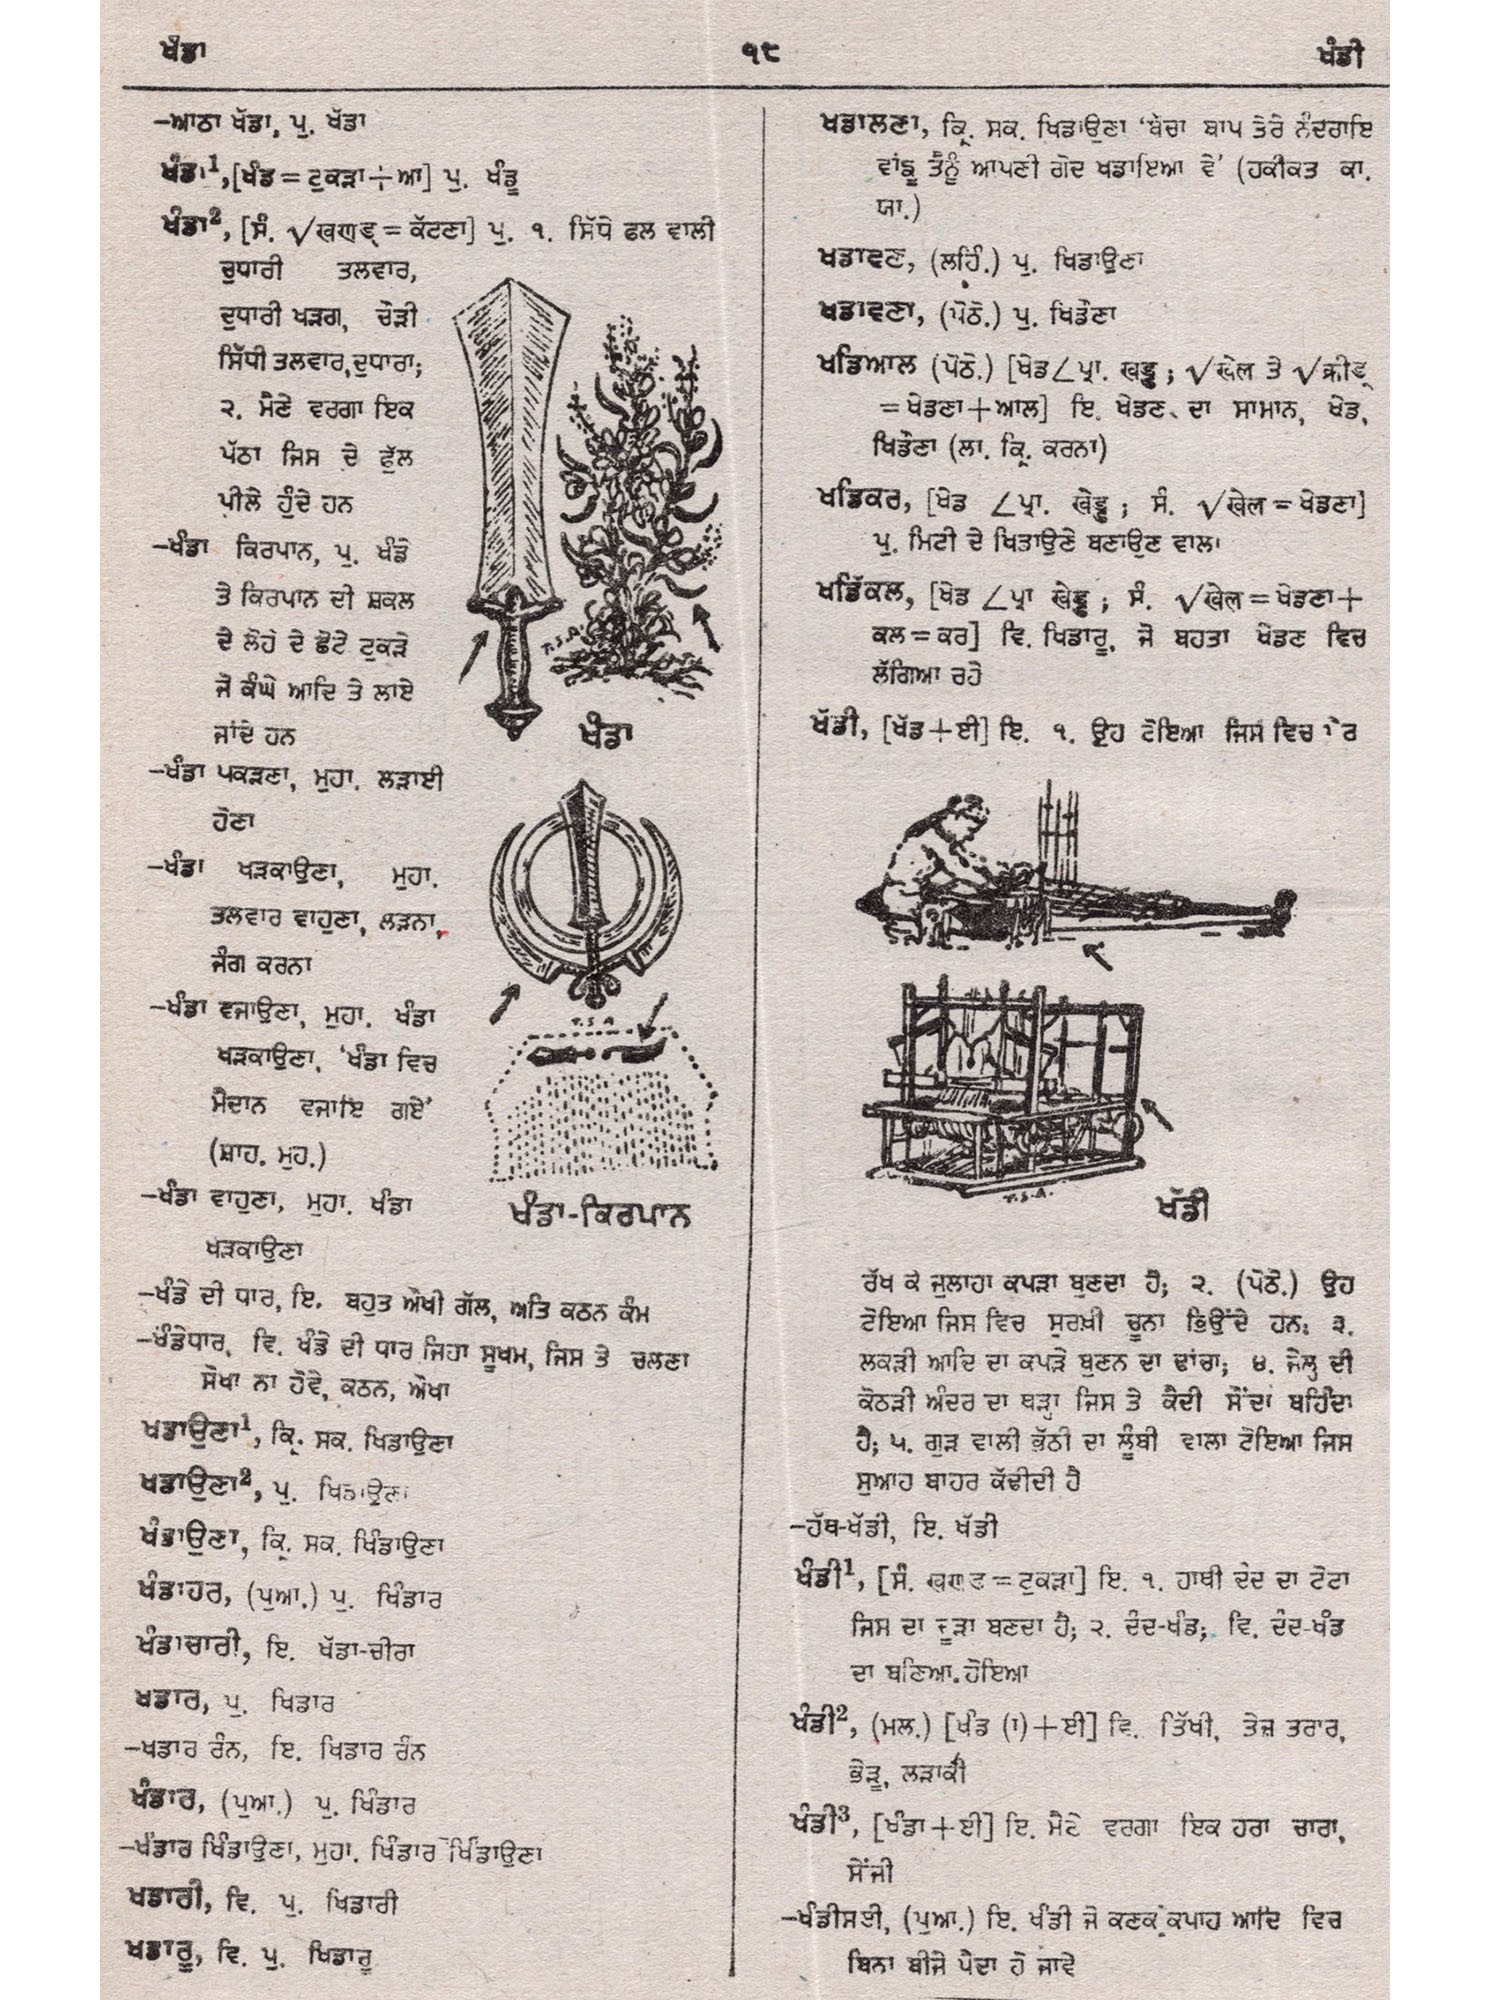 ਖੰਡਾ
੧੮
ਖੰਡੀ
–ਆਠਾ ਖੱਡਾ, ਪੁ. ਖੱਡਾ
ਖੰਡਾ¹, [ਖੰਡ = ਟੁਕੜਾ÷ਆ] ਪੁ. ਖੰਡੂ
ਖੰਡਾ², [ਸੰ. √खण्ड् = ਕੱਟਣਾ] ਪੁ. ੧. ਸਿੱਧੇ ਫਲ ਵਾਲੀ
ਚੁਧਾਰੀ ਤਲਵਾਰ,
ਦੁਧਾਰੀ ਖੜਗ, ਚੌੜੀ
ਸਿੱਧੀ ਤਲਵਾਰ, ਦੁਧਾਰਾ;
੨. ਮੈਣੇ ਵਰਗਾ ਇਕ
ਪੱਠਾ ਜਿਸ ਦੇ ਫੁੱਲ
ਪੀਲੇ ਹੁੰਦੇ ਹਨ
–ਖੰਡਾ ਕਿਰਪਾਨ, ਪੁ. ਖੰਡੇ
ਤੇ ਕਿਰਪਾਨ ਦੀ ਸ਼ਕਲ
ਦੇ ਲੋਹੇ ਦੇ ਛੋਟੇ ਟੁਕੜੇ
ਜੋ ਕੰਘੇ ਆਦਿ ਤੇ ਲਾਏ
ਜਾਂਦੇ ਹਨ
T.S.A.
ਖੰਡਾ
–ਖੰਡਾ ਪਕੜਣਾ, ਮੁਹਾ. ਲੜਾਈ
ਹੋਣਾ
–ਖੰਡਾ ਖੜਕਾਉਣਾ, ਮੁਹਾ.
ਤਲਵਾਰ ਵਾਹੁਣਾ, ਲੜਨਾ,
ਜੰਗ ਕਰਨਾ
–ਖੰਡਾ ਵਜਾਉਣਾ, ਮੁਹਾ. ਖੰਡਾ
ਖੜਕਾਉਣਾ, ‘ਖੰਡਾ ਵਿਚ
ਮੈਦਾਨ ਵਜਾਇ ਗਏ’
(ਸ਼ਾਹ. ਮੁਹ.)
–ਖੰਡਾ ਵਾਹੁਣਾ, ਮੁਹਾ. ਖੰਡਾ
ਖੜਕਾਉਣਾ
T.S.A
ਖੰਡਾ-ਕਿਰਪਾਨ
–ਖੰਡੇ ਦੀ ਧਾਰ, ਇ. ਬਹੁਤ ਔਖੀ ਗੱਲ, ਅਤਿ ਕਠਨ ਕੰਮ
–ਖੰਡੇਧਾਰ, ਵਿ. ਖੰਡੇ ਦੀ ਧਾਰ ਜਿਹਾ ਸੂਖਮ, ਜਿਸ ਤੇ ਚਲਣਾ
ਸੌਖਾ ਨਾ ਹੋਵੇ, ਕਠਨ, ਔਖਾ
ਖਡਾਉਣਾ¹, ਕ੍ਰਿ. ਸਕ. ਖਿਡਾਉਣਾ
ਖਡਾਉਣਾ², ਪੁ. ਖਿਡਾਉਣਾ
ਖੰਡਾਉਣਾ, ਕ੍ਰਿ. ਸਕ. ਖਿੰਡਾਉਣਾ
ਖੰਡਾਹਰ, (ਪੁਆ.) ਪੁ. ਖਿੰਡਾਰ
ਖੰਡਾਚਾਰੀ, ਇ. ਖੱਡਾ-ਚੀਰਾ
ਖਡਾਰ, ਪੁ. ਖਿਡਾਰ
–ਖਡਾਰ ਰੰਨ, ਇ. ਖਿਡਾਰ ਰੰਨ
ਖੰਡਾਰ, (ਪੁਆ.) ਪੁ. ਖਿੰਡਾਰ
–ਖੰਡਾਰ ਖਿੰਡਾਉਣਾ, ਮੁਹਾ. ਖਿੰਡਾਰ ਖਿੰਡਾਉਣਾ
ਖਡਾਰੀ, ਵਿ. ਪੁ. ਖਿਡਾਰੀ
ਖਡਾਰੂ, ਵਿ. ਪੁ. ਖਿਡਾਰੂ
ਖਡਾਲਣਾ, ਕ੍ਰਿ. ਸਕ. ਖਿਡਾਉਣਾ ‘ਬੇਚਾ ਬਾਪ ਤੇਰੇ ਨੰਦਰਾਇ
ਵਾਂਙੂ ਤੈਨੂੰ ਆਪਣੀ ਗੋਦ ਖਡਾਇਆ ਵੇ’ (ਹਕੀਕਤ ਕਾ.
ਯਾ.)
ਖਡਾਵਣ, (ਲਹਿੰ.) ਪੁ. ਖਿਡਾਉਣਾ
ਖਡਾਵਣਾ, (ਪੋਠੋ.) ਪੁ. ਖਿਡੌਣਾ
ਖਡਿਆਲ (ਪੋਠੋ.) [ਖੇਡ∠ਪ੍ਰਾ. खड्डु ; √खेल ਤੇ √क्रीड्
= ਖੇਡਣਾ+ਆਲ] ਇ. ਖੇਡਣ ਦਾ ਸਾਮਾਨ, ਖੇਡ,
ਖਿਡੌਣਾ (ਲਾ. ਕ੍ਰਿ. ਕਰਨਾ)
ਖਡਿਕਰ, [ਖੇਡ ∠ਪ੍ਰਾ. खेड्डु ; ਸੰ. √खेल = ਖੇਡਣਾ]
ਪੁ. ਮਿਟੀ ਦੇ ਖਿਡਾਉਣੇ ਬਣਾਉਣ ਵਾਲਾ
ਖਡਿੱਕਲ, [ਖੇਡ ∠ਪ੍ਰਾ खेड्डु ; ਸੰ. √खेल = ਖੇਡਣਾ+
ਕਲ = ਕਰ] ਵਿ. ਖਿਡਾਰੂ, ਜੋ ਬਹਤਾ ਖੇਡਣ ਵਿਚ
ਲੱਗਿਆ ਰਹੇ
ਖੱਡੀ, [ਖੱਡ+ਈ] ਇ. ੧. ਉਹ ਟੋਇਆ ਜਿਸ ਵਿਚ ਪੈਰ
T.S.A.
ਖੱਡੀ
ਰੱਖ ਕੇ ਜੁਲਾਹਾ ਕਪੜਾ ਬੁਣਦਾ ਹੈ; ੨. (ਪੋਠੋ.) ਉਹ
ਟੋਇਆ ਜਿਸ ਵਿਚ ਸੁਰਖ਼ੀ ਚੂਨਾ ਭਿਉਂਦੇ ਹਨ; ੩.
ਲਕੜੀ ਆਦਿ ਦਾ ਕਪੜੇ ਬੁਣਨ ਦਾ ਢਾਂਚਾ; ੪. ਜੇਲ੍ਹ ਦੀ
ਕੋਠੜੀ ਅੰਦਰ ਦਾ ਥੜ੍ਹਾ ਜਿਸ ਤੇ ਕੈਦੀ ਸੌਂਦਾ ਬਹਿੰਦਾ
ਹੈ; ੫. ਗੁੜ ਵਾਲੀ ਭੱਠੀ ਦਾ ਲੂੰਬੀ ਵਾਲਾ ਟੋਇਆ ਜਿਸ
ਸੁਆਹ ਬਾਹਰ ਕੱਢੀਦੀ ਹੈ
–ਹੱਥ-ਖੱਡੀ, ਇ. ਖੱਡੀ
ਖੰਡੀ¹, [ਸੰ. खण्ड = ਟੁਕੜਾ] ਇ. ੧. ਹਾਥੀ ਦੰਦ ਦਾ ਟੋਟਾ
ਜਿਸ ਦਾ ਚੂੜਾ ਬਣਦਾ ਹੈ; ੨. ਦੰਦ-ਖੰਡ; ਵਿ. ਦੰਦ-ਖੰਡ
ਦਾ ਬਣਿਆ.ਹੋਇਆ
ਖੰਡੀ², (ਮਲ.) [ਖੰਡ (ਾ)+ਈ] ਵਿ. ਤਿੱਖੀ, ਤੇਜ਼ ਤਰਾਰ,
ਭੇੜੂ, ਲੜਾਕੀ
ਖੰਡੀ³, [ਖੰਡਾ+ਈ] ਇ. ਮੈਣੇ ਵਰਗਾ ਇਕ ਹਰਾ ਚਾਰਾ,
ਸੇਂਜੀ
–ਖੰਡੀਸਈ, (ਪੁਆ.) ਇ. ਖੰਡੀ ਜੋ ਕਣਕ ਕਪਾਹ ਆਦਿ ਵਿਚ
ਬਿਨਾ ਬੀਜੇ ਪੈਦਾ ਹੋ ਜਾਵੇ